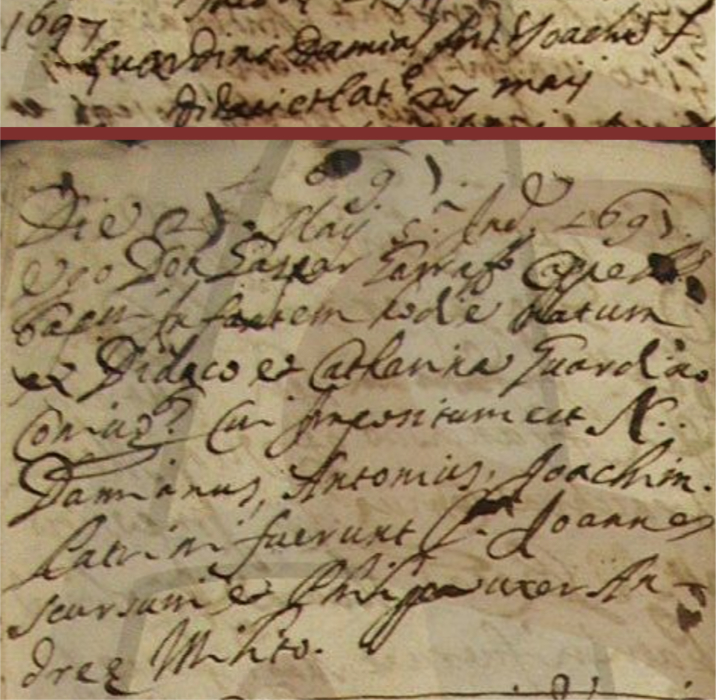 1697
Guardino Damian Ant Joach f
Didaci et Cat.e 27 maij
1697
Die 27 Maij 5.a Ind. 1697
Ego Don Gaspar Cappell
bap infantem hodie natum
ex Didaco et Catherina Guardino
Coniug. Cui impositum est N.
Damianus, Antonius, Joachim.
Patrini fuerunt Joannes
scursuni et Philippa uxor An-
dree Milito.